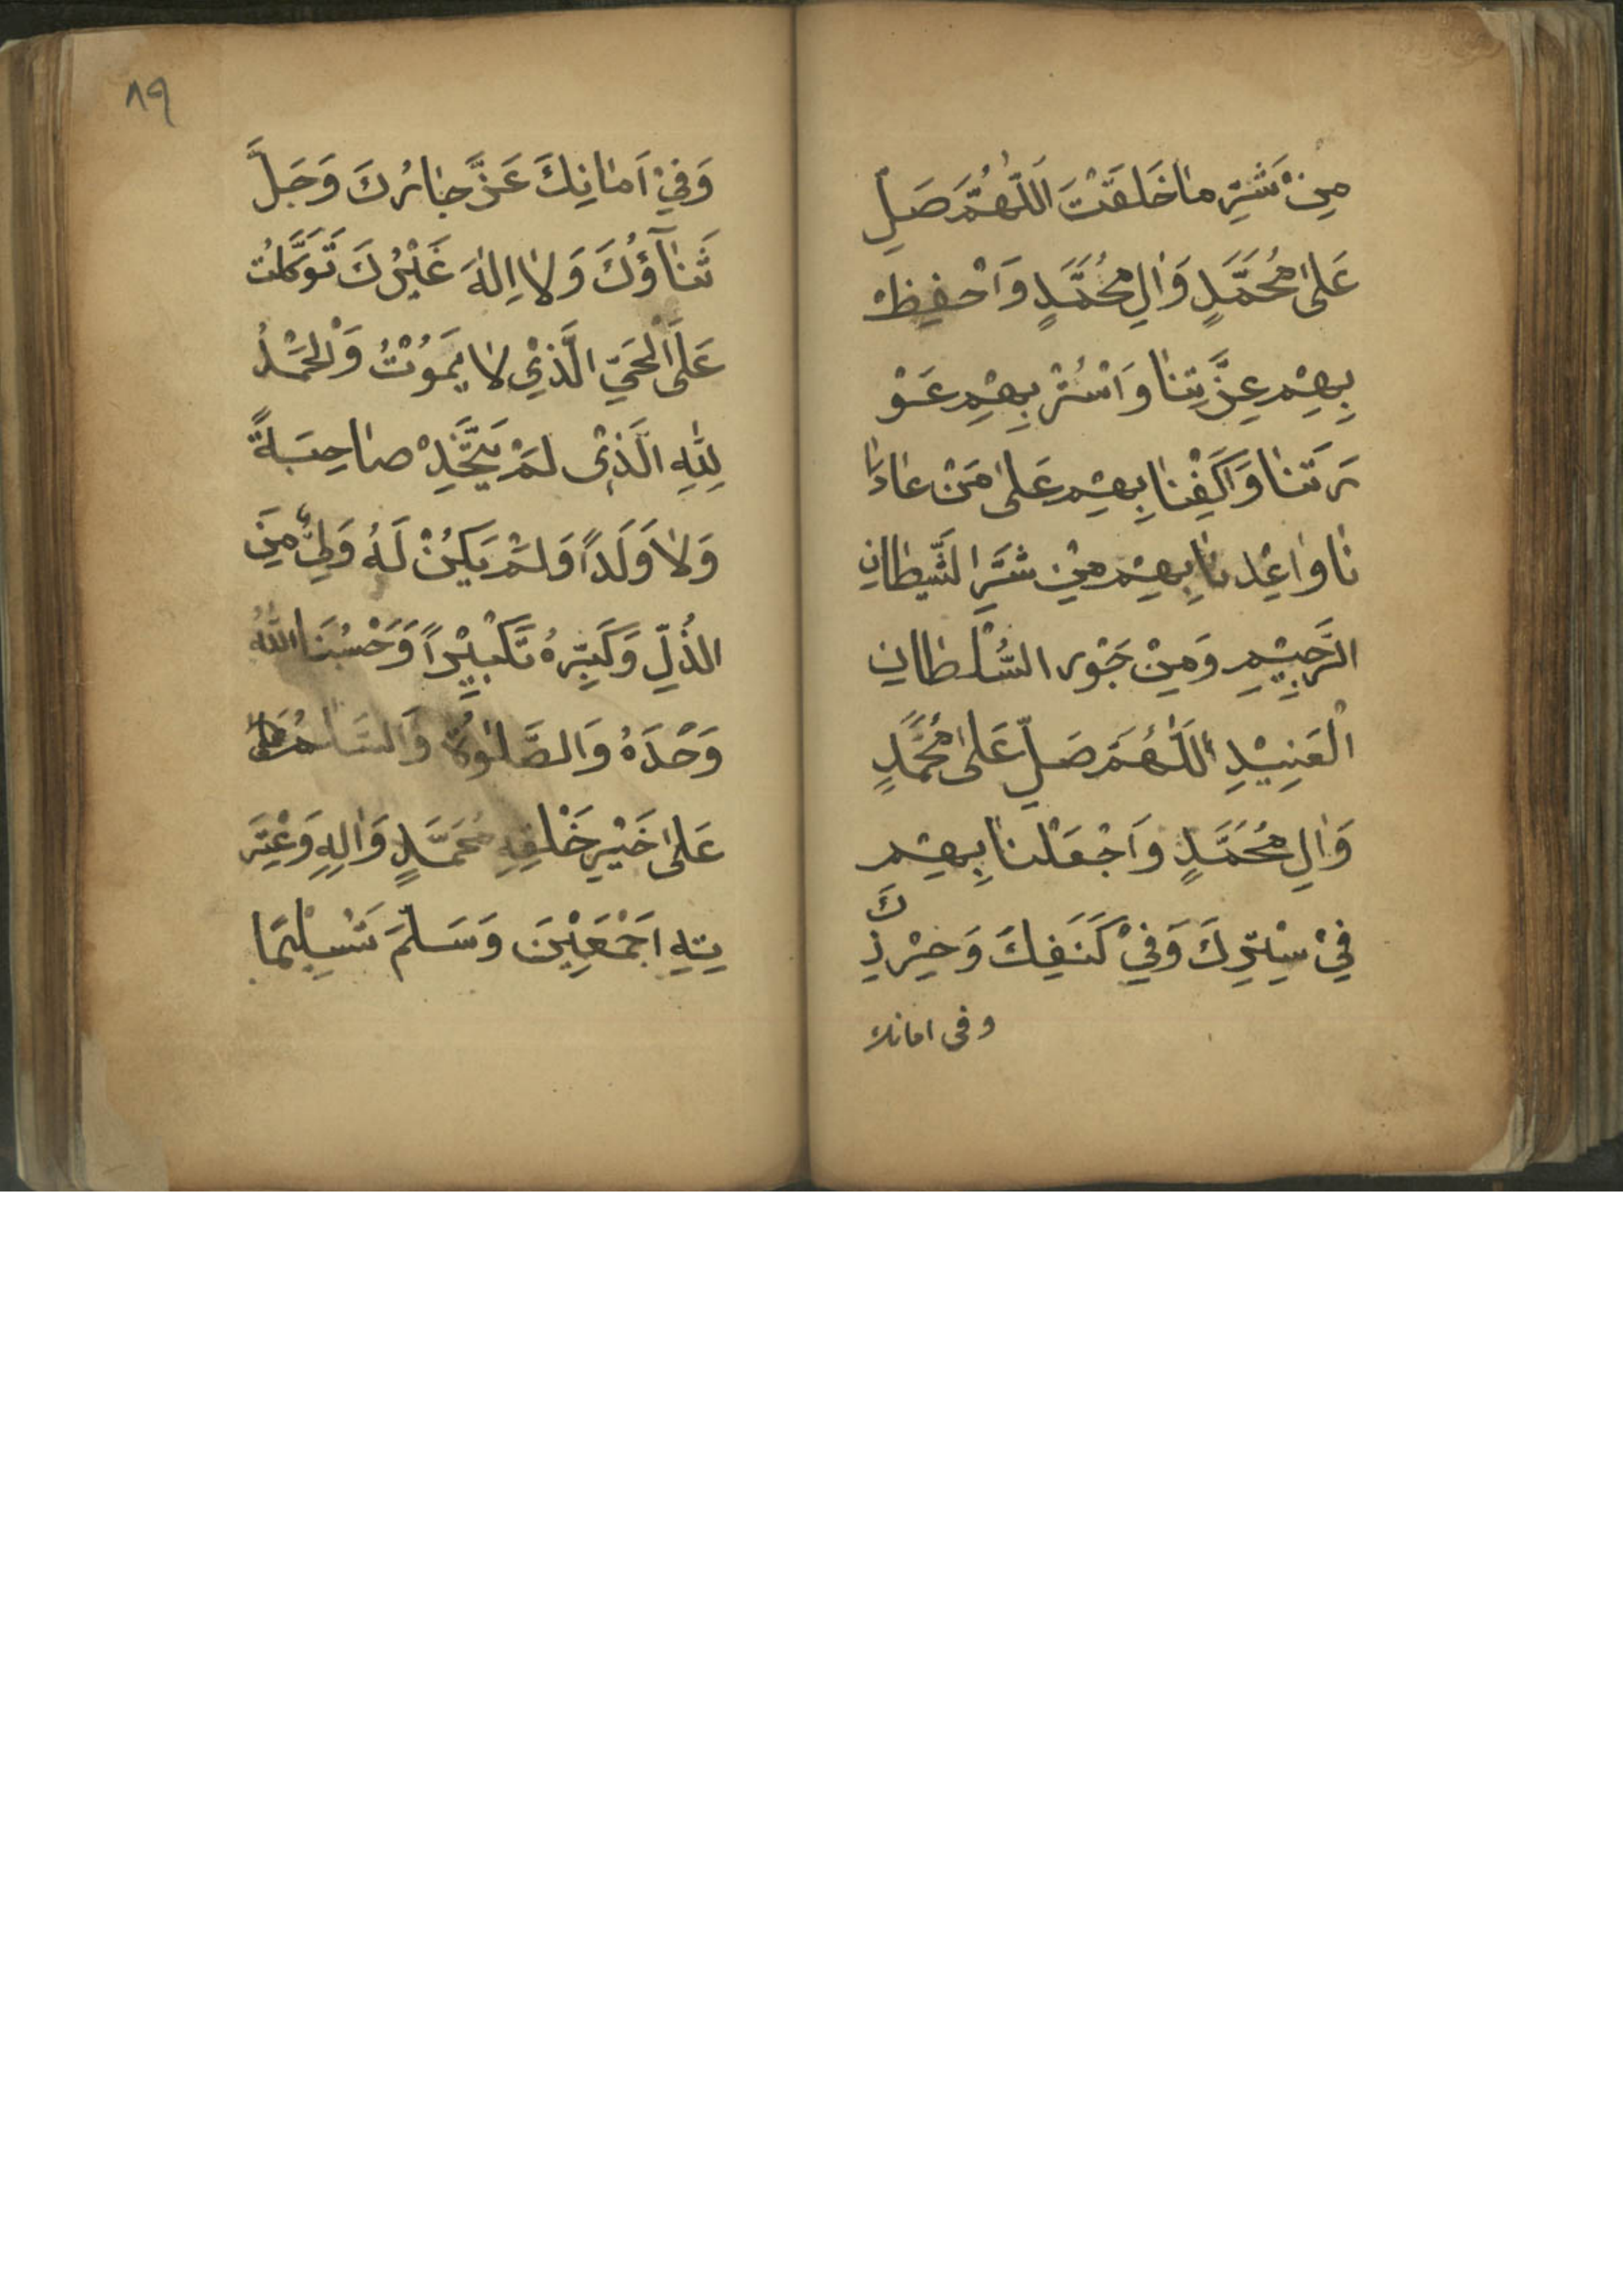 مِنْ شَرِّ مٰا خَلَقْتَ اَللّٰهُمَّ صَلِّ
عَلىٰ مُحَمَّدٍ وَاٰلِ مُحَمَّدٍ وَاحْفِظْ
بِهِمْ عِزَّتِنٰا وَاسْتُرْ بِهِمْ عَوْ
رَتَنٰا وَاكْفِنٰا بِهِمْ عَلىٰ مَنْ عٰادٰا
نٰا وَاعِذْنٰا بِهِمْ مِنْ شَرِّ الشَّيْطٰانِ
الرَّجِيْمِ وَمِنْ جَوْرِ السُّلْطٰانِ
الْعَنِيْدِ اَللّٰهُمَّ صَلِّ عَلىٰ مُحَمَّدٍ
وَاٰلِ مُحَمَّدٍ وَاجْعَلْنٰا بِهِمْ
فِيْ سِتْرِكَ وَفِيْ كَنَفِكَ وَحِرْزِكَ
وفى امانك
٨٩
وَفِيْ اَمٰانِكَ عَزَّ جٰارُكَ وَجَلَّ
ثَنٰآؤُكَ وَلٰا اِلٰهَ غَيْرُكَ تَوَكَّلْتُ
عَلَى الْحَيِّ الَّذِيْ لٰا يَمُوْتُ وَالْحَمْدُ
لِلّٰهِ الَّذِىْ لَمْ يَتَّخِذْ صٰاحِبَةً
وَلٰا وَلَداً وَلَمْ يَكُنْ لَهُ وَلِيٌّ مِنَ
الذُّلِّ وَكَبِّرْهُ تَكْبِيْراً وَحَسْبُنَا اللّٰهُ
وَحْدَهُ وَالصَّلوٰةُ وَالسَّلٰامُ
عَلىٰ خَيْرِ خَلْقِهِ مُحَمَّدٍ وَاٰلِهِ وَعِتْرَ
تِهِ اَجْمَعِيْنَ وَسَلَّمَ تَسْلِيْمًا